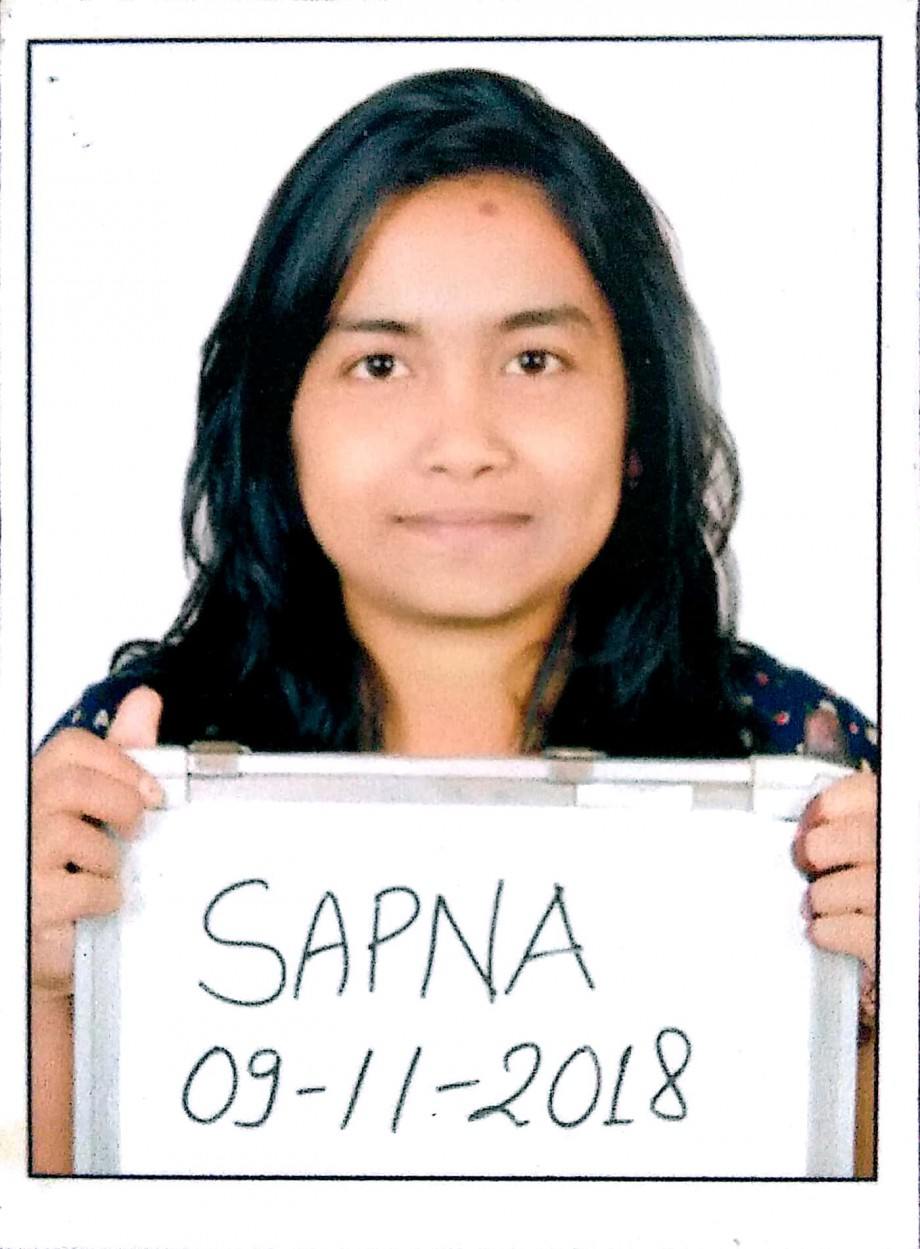 SAPNA
09-11-2018